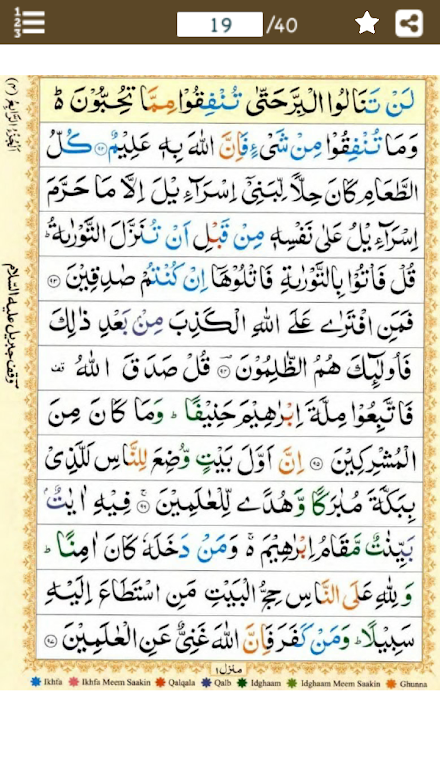 1
2
3
19 /40
لَنْ تَنَالُوا الْبِرَّ حَتّٰى تُنْفِقُوْا مِمَّا تُحِبُّوْنَ ؕ۬
وَمَا تُنْفِقُوْا مِنْ شَىْءٍ فَاِنَّ اللّٰهَ بِهٖ عَلِيْمٌ ﴿۹۲﴾ كُلُّ
الطَّعَامِ كَانَ حِلًّا لِّبَنِىْٓ اِسْرَآءِيْلَ اِلَّا مَا حَرَّمَ
اِسْرَآءِيْلُ عَلٰى نَفْسِهٖ مِنْ قَبْلِ اَنْ تُنَزَّلَ التَّوْرٰىةُ ؕ
قُلْ فَاْتُوْا بِالتَّوْرٰىةِ فَاتْلُوْهَاۤ اِنْ كُنْتُمْ صٰدِقِيْنَ ﴿۹۳﴾
فَمَنِ افْتَرٰى عَلَى اللّٰهِ الْكَذِبَ مِنْۢ بَعْدِ ذٰلِكَ
فَاُولٰٓئِكَ هُمُ الظّٰلِمُوْنَ ﴿۹۴﴾ قُلْ صَدَقَ اللّٰهُ
فَاتَّبِعُوْا مِلَّةَ اِبْرٰهِيْمَ حَنِيْفًا ؕ وَمَا كَانَ مِنَ
الْمُشْرِكِيْنَ ﴿۹۵﴾ اِنَّ اَوَّلَ بَيْتٍ وُّضِعَ لِلنَّاسِ لَلَّذِىْ
بِبَكَّةَ مُبٰرَكًا وَّهُدًى لِّلْعٰلَمِيْنَ ﴿۹۶﴾ فِيْهِ اٰيٰتٌۢ
بَيِّنٰتٌ مَّقَامُ اِبْرٰهِيْمَ ۬ۚ وَمَنْ دَخَلَهٗ كَانَ اٰمِنًا ؕ
وَلِلّٰهِ عَلَى النَّاسِ حِجُّ الْبَيْتِ مَنِ اسْتَطَاعَ اِلَيْهِ
سَبِيْلًا ؕ وَمَنْ كَفَرَ فَاِنَّ اللّٰهَ غَنِىٌّ عَنِ الْعٰلَمِيْنَ ﴿۹۷﴾
منزل ۱
Ikhfa Ikhfa Meem Saakin Qalqala Qalb Idghaam Idghaam Meem Saakin Ghunna